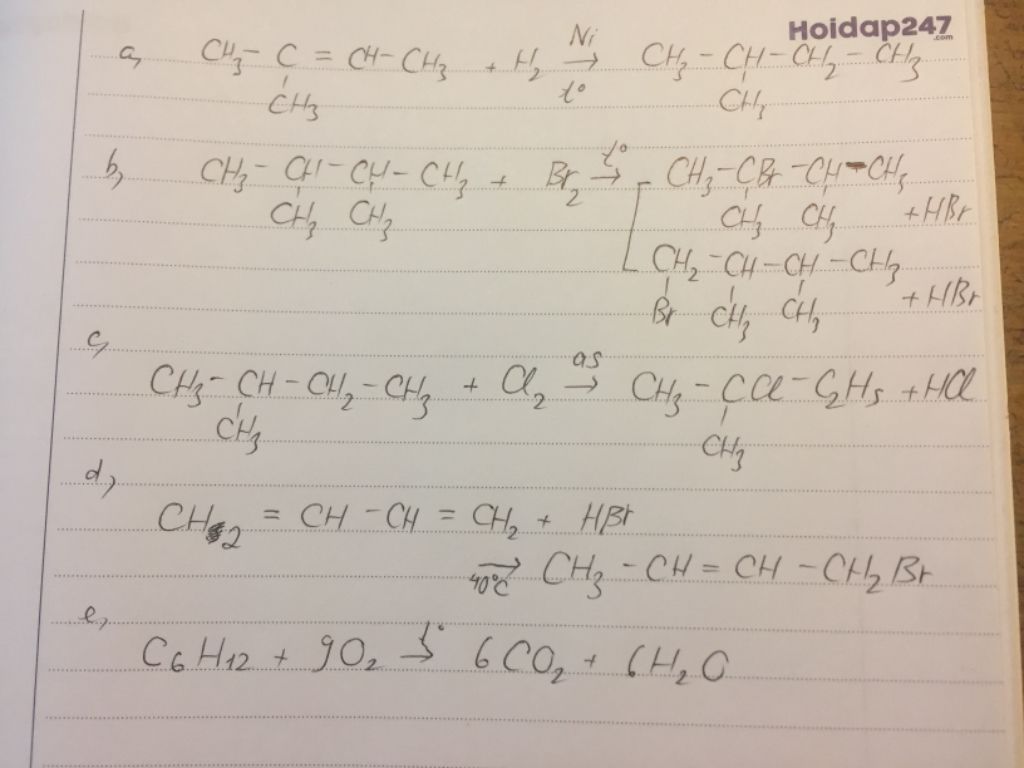 Hoidap247
.com
a, CH3 - C = CH - CH3 + H2 Ni → t° CH3 - CH - CH2 - CH3
CH3 CH3
b, CH3 - CH - CH - CH3 + Br2 t° → CH3 - CBr - CH - CH3
CH3 CH3 CH3 CH3 + HBr
CH2 - CH - CH - CH3
Br CH3 CH3 + HBr
c,
CH3 - CH - CH2 - CH3 + Cl2 as → CH3 - CCl - C2H5 + HCl
CH3 CH3
d,
CH2 = CH - CH = CH2 + HBr
→ 40°C CH3 - CH = CH - CH2Br
e,
C6H12 + 9O2 t° → 6CO2 + 6H2O